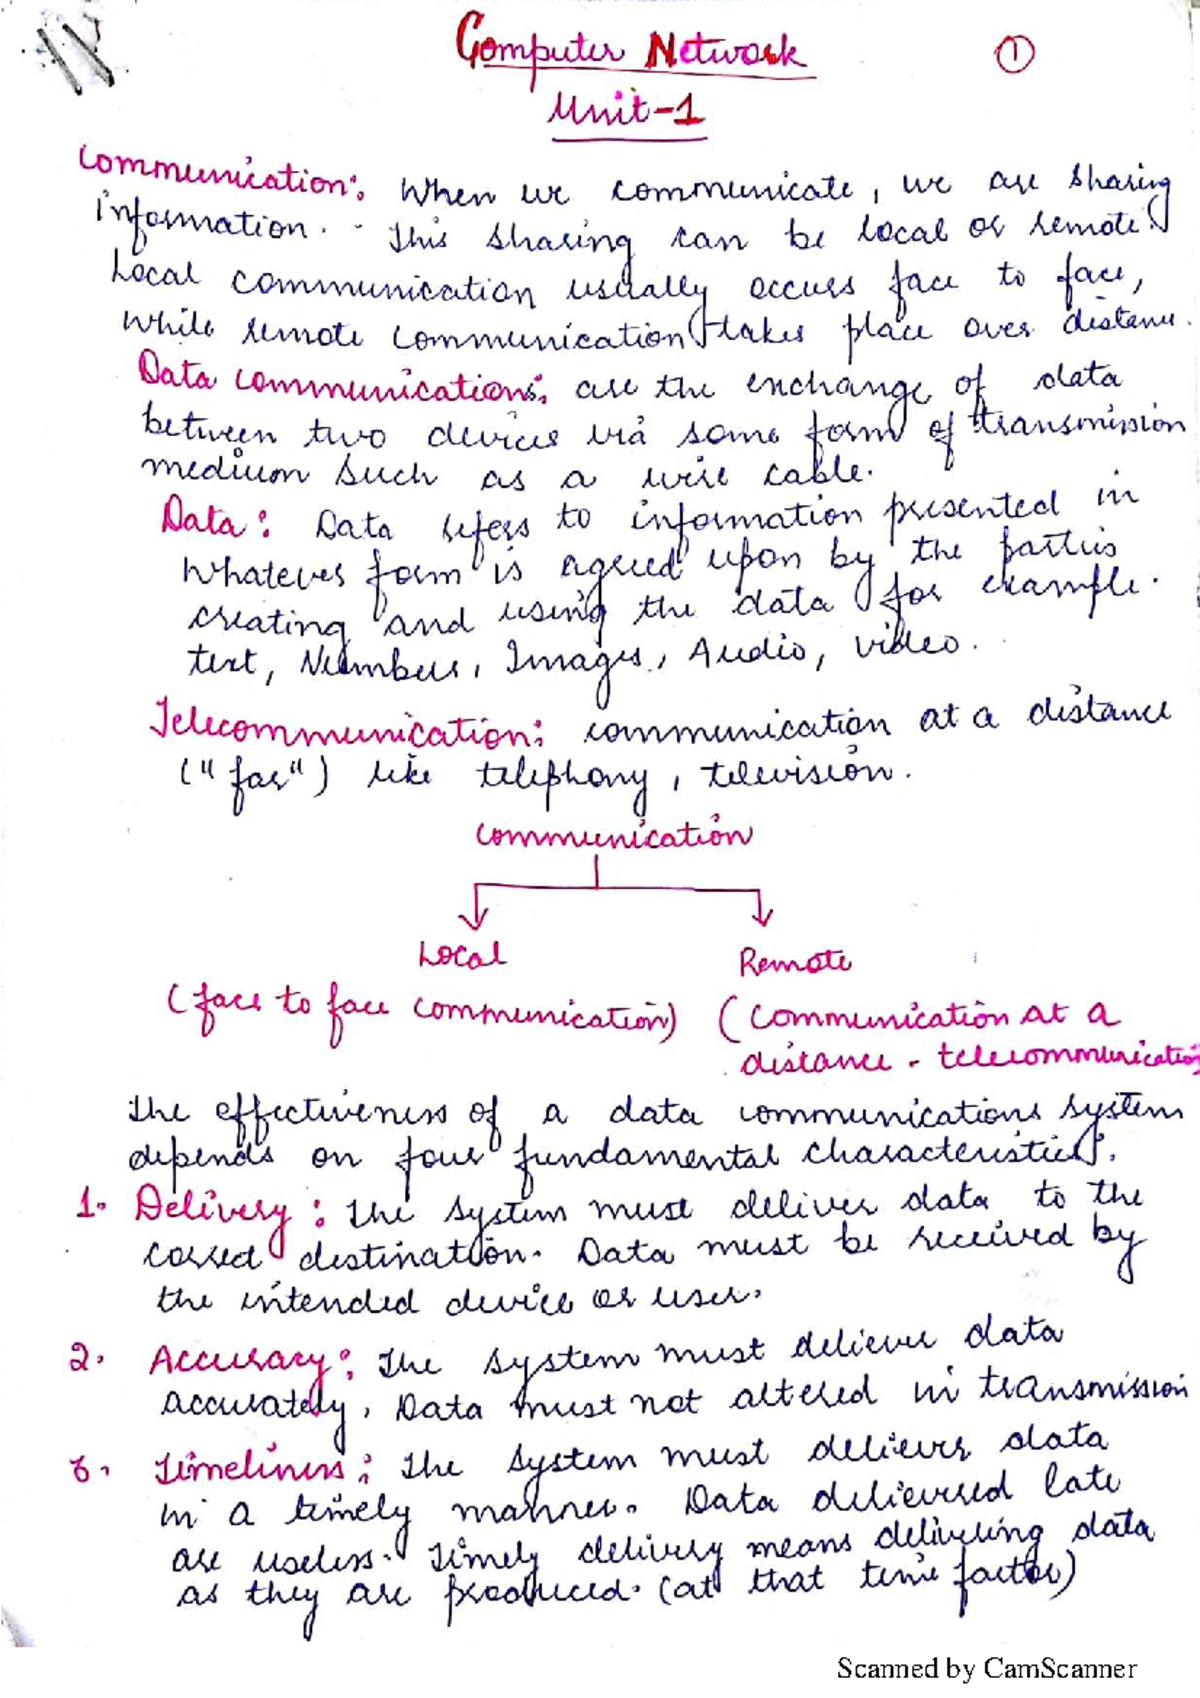 Computer Network
1
Unit-1
Communication: When we communicate, we are sharing
information. This sharing can be local or remote.
Local communication usually occurs face to face,
while remote communication takes place over distance.
Data communications: are the exchange of data
between two devices via some form of transmission
medium such as a wire cable.
Data: Data refers to information presented in
whatever form is agreed upon by the parties
creating and using the data for example.
text, Numbers, Images, Audio, video.
Telecommunication: communication at a distance
("far") like telephony, television.
communication
Local Remote
(face to face communication) (communication at a
distance - telecommunication
The effectiveness of a data communications system
depends on four fundamental characteristics.
1. Delivery: The system must deliver data to the
correct destination. Data must be received by
the intended device or user.
2. Accuracy: The system must deliever data
accurately, Data must not altered in transmission
3. Timeliness: The system must deliever data
in a timely manner. Data delievered late
are useless. Timely delivery means delivering data
as they are produced. (at that time factor)
Scanned by CamScanner